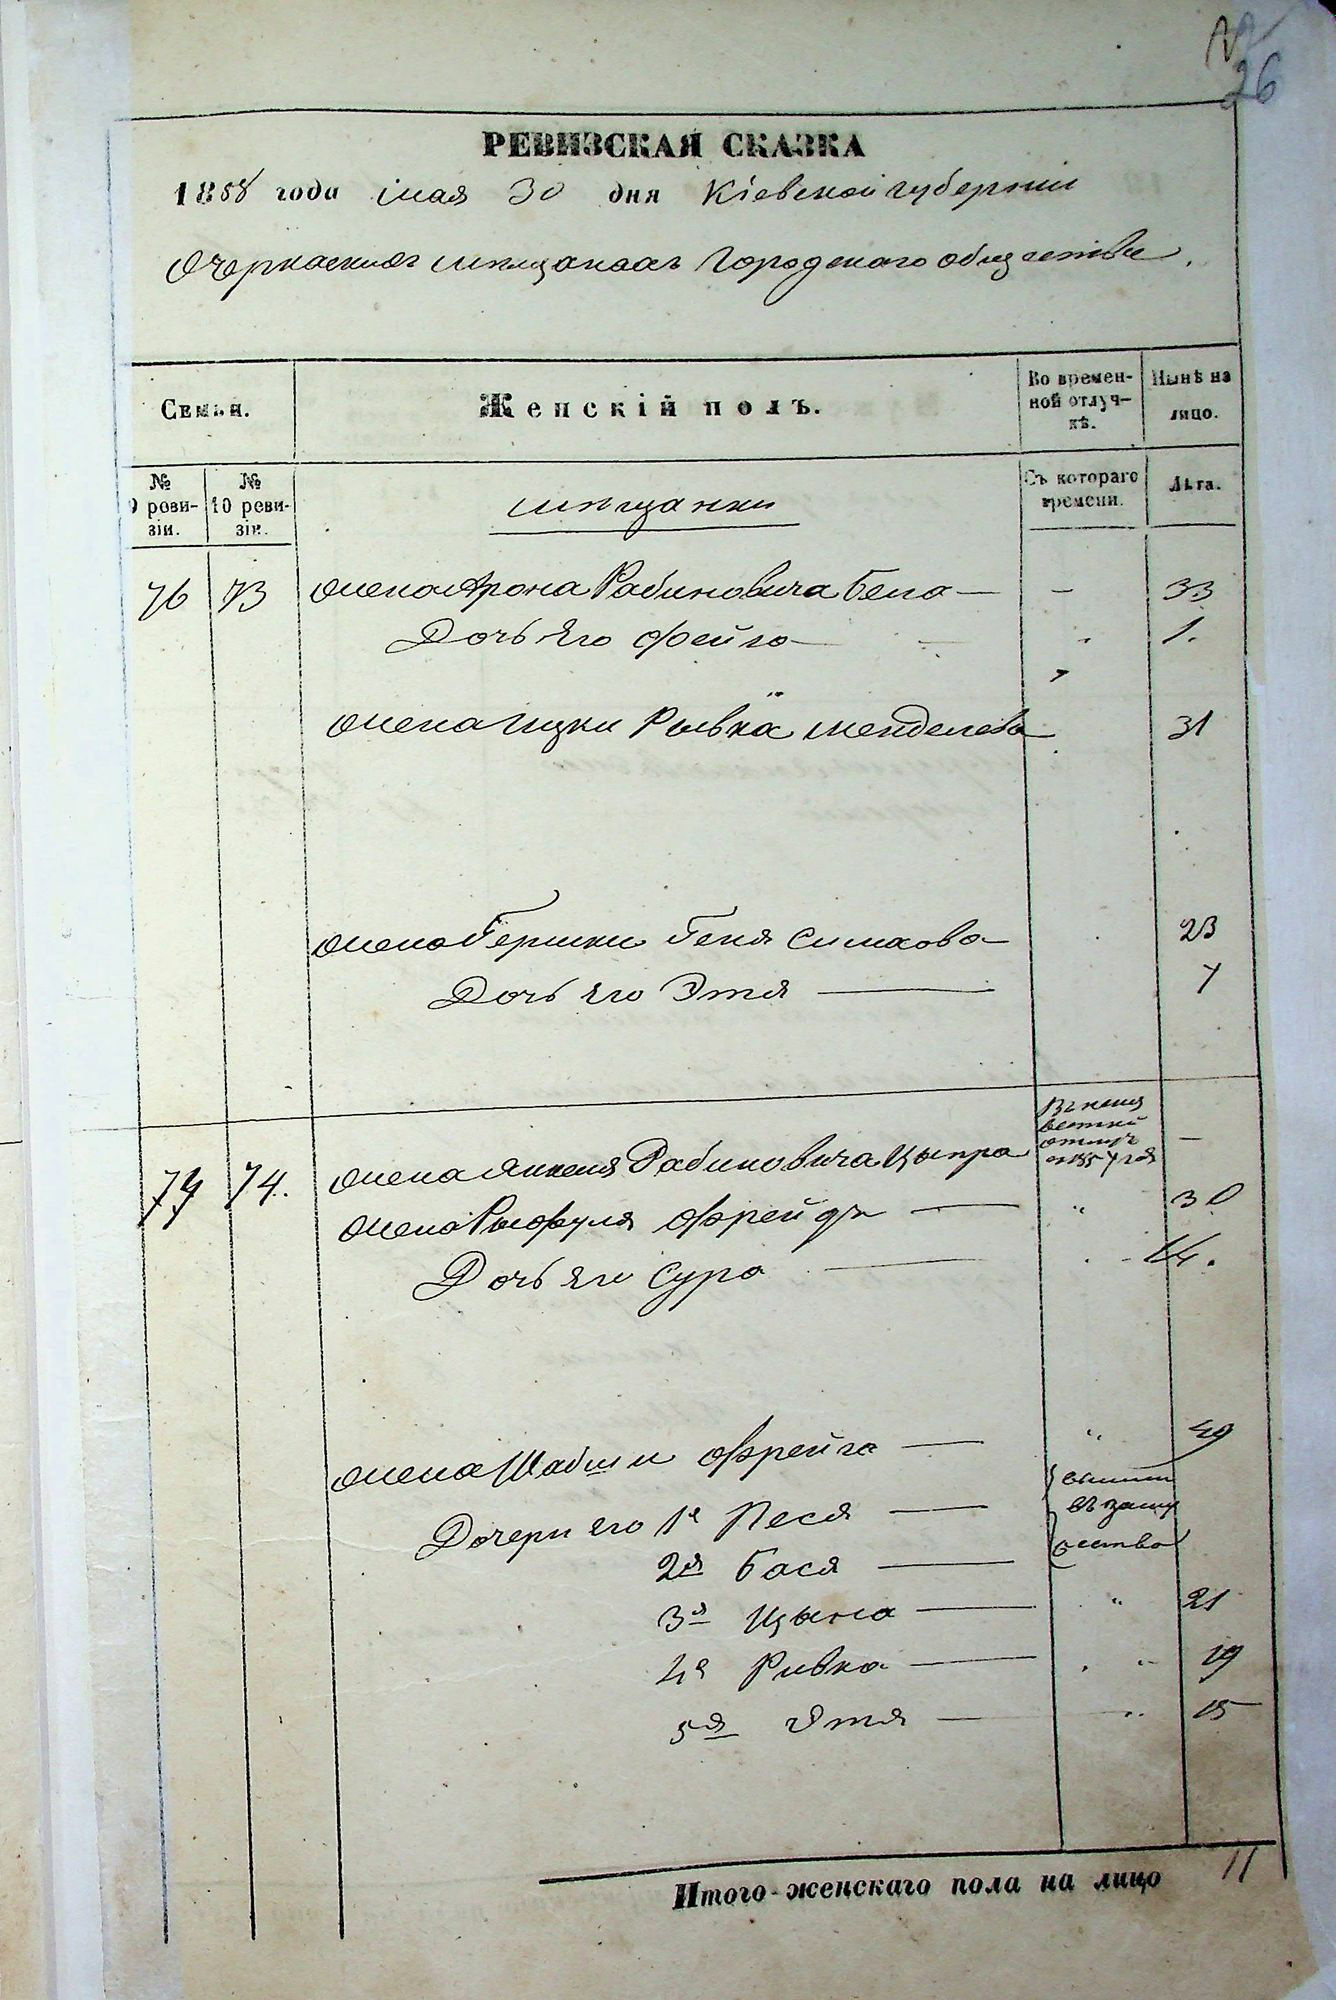 26
РЕВИЗСКАЯ СКАЗКА
1858 года мая 30 дня Кіевской губерніи
Черкаских мещанах Городскаго общества.
Семьи.
Женскій полъ.
Во времен-
ной отлуч-
кѣ.
Нынѣ на
лицо.
№
9 реви-
зіи.
№
10 реви-
зіи.
мещанки
Съ котораго
времени.
Лѣта.
76 73 жена Арона Рабиновича Бела — - 33
Дочь Его Фейга — 1.
жена Ицки Ривка Менделева 31
жена Гершки Геня Симхова — 23
Дочь Его Этя — 7
77 74. жена Янкеля Рабиновича Ципра —
Въ неиз
вестной
отлуч
жена Рафуля Фрейда — " 30
Дочь Его Сура — 14.
жена Шабши Фрейга — " 49
Дочери Его 1я Песя —
2я Бася —
вышли
въ заму
жество
3я Цына — " 21
4я Ривка — " 19
5я Этя — " 15
Итого женскаго пола на лицо 11